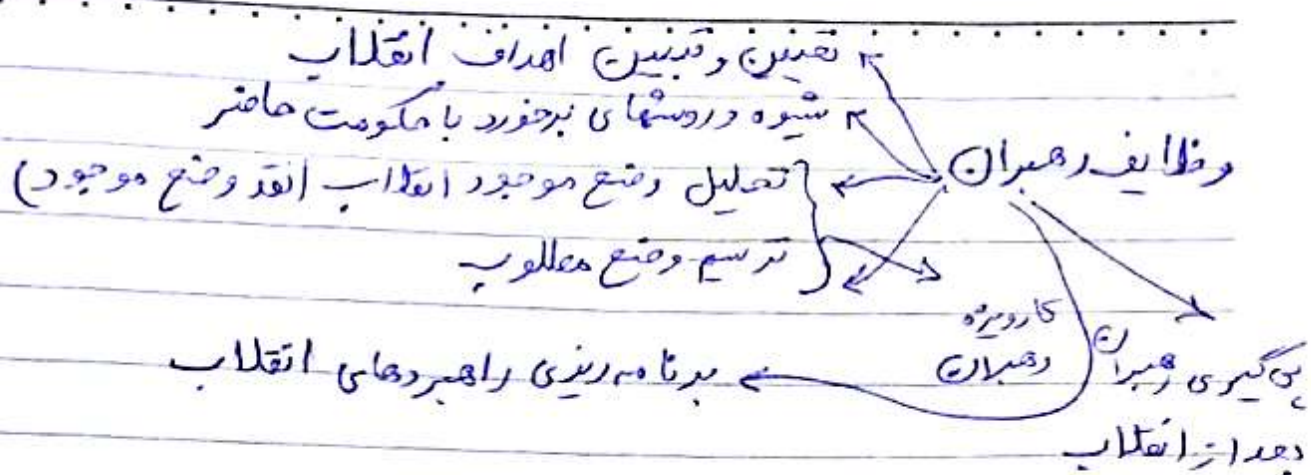 تعیین و تبیین اهداف انقلاب
شیوه و روشهای برخورد با حکومت حاضر
وظایف رهبران
تحلیل وضع موجود انقلاب (نقد وضع موجود)
ترسیم وضع مطلوب
کارویژه
رهبران
پی گیری رهبران
بعد از انقلاب
برنامه ریزی راهبردهای انقلاب